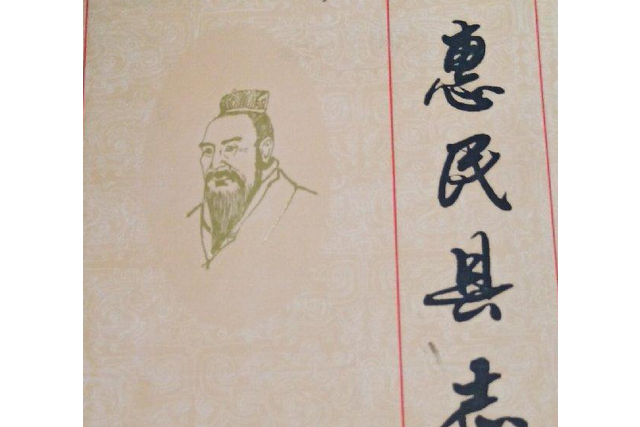 惠民县志